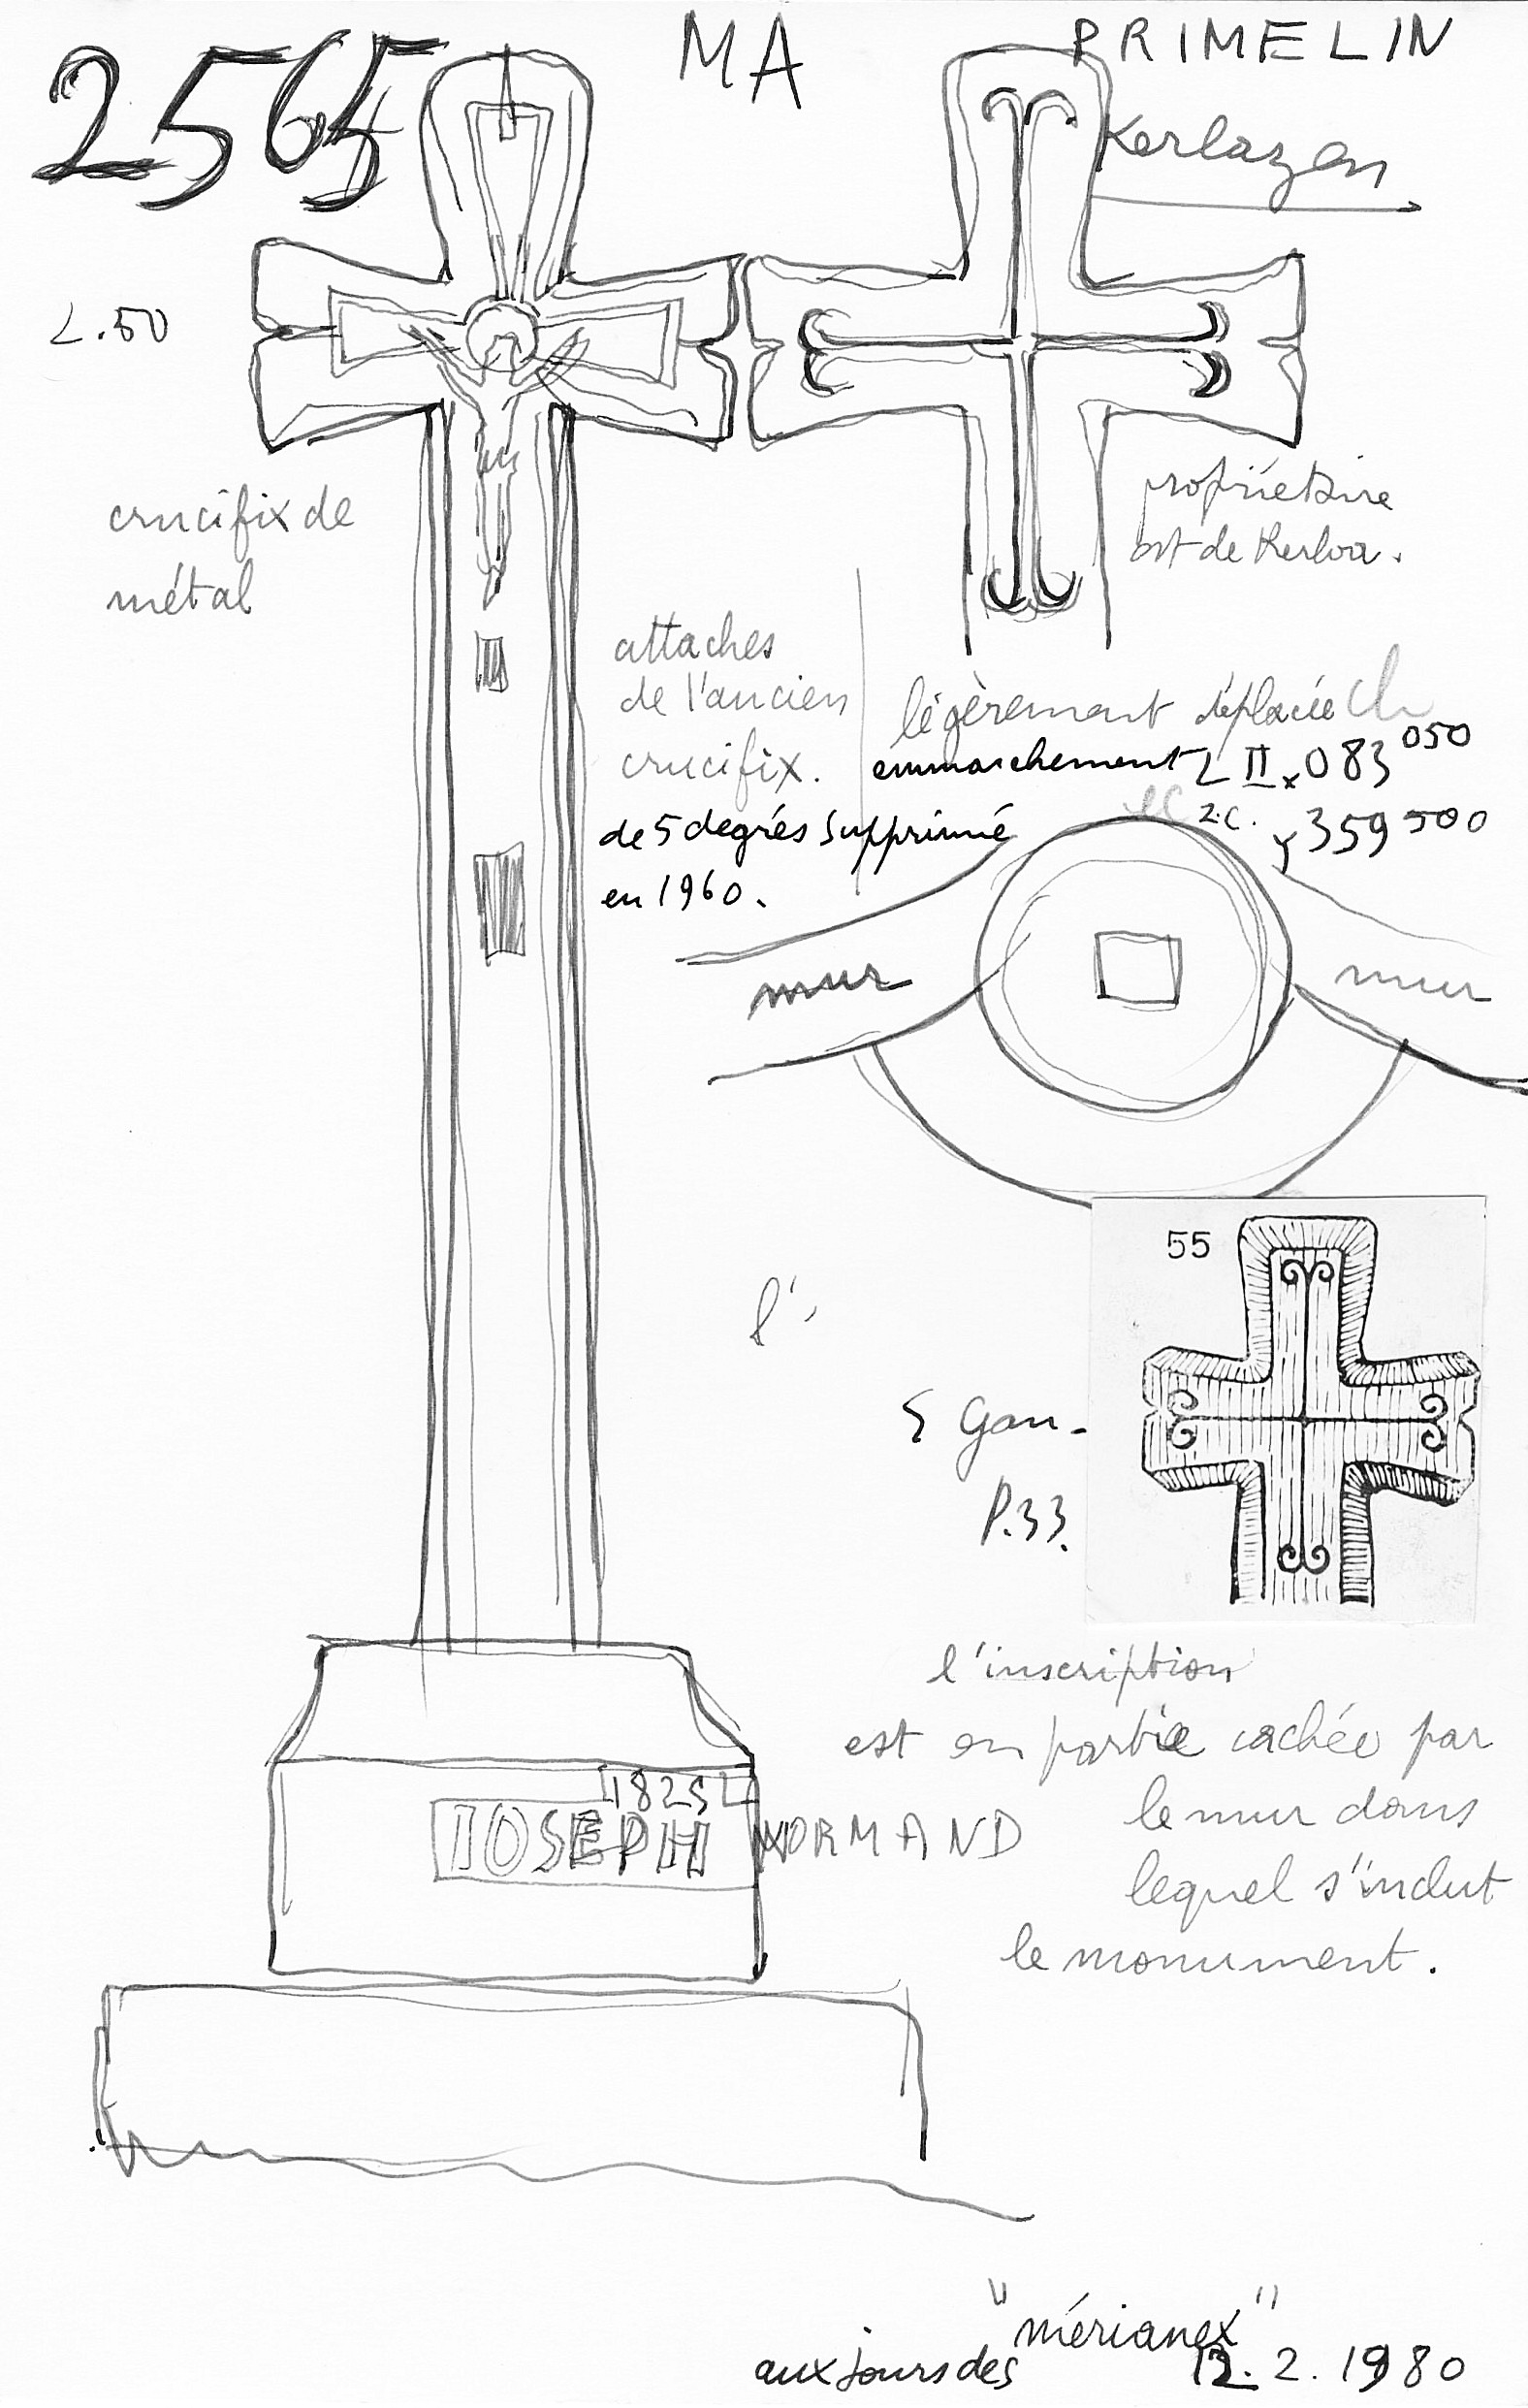 2565
MA
PRIMELIN
Kerlazen
2.50
crucifix de
métal
propriétaire
est de Kerloa.
attaches
de l'ancien
crucifix.
légèrement déplacée
emmarchement
de 5 degrés supprimé
en 1960.
L II x 083 050
2.C. y 359 500
mur
mur
55
l'
Gau-
P.33.
l'inscription
est en partie cachée par
le mur dans
lequel s'inclut
le monument.
1825
IOSEPH NORMAND
"mérianex"
aux jours des 12.2.1980